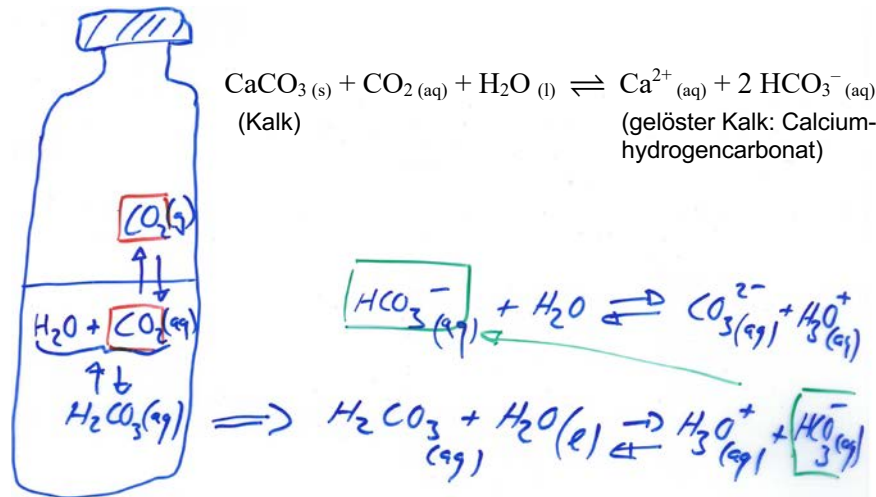 CaCO₃ (s) + CO₂ (aq) + H₂O (l) ⇌ Ca²⁺ (aq) + 2 HCO₃⁻ (aq)
(Kalk) (gelöster Kalk: Calcium-
hydrogencarbonat)
CO₂(g)
H₂O + CO₂(aq)
H₂CO₃(aq)
HCO₃⁻(aq) + H₂O ⇌ CO₃²⁻(aq) + H₃O⁺(aq)
H₂CO₃(aq) + H₂O(l) ⇌ H₃O⁺(aq) + HCO₃⁻(aq)